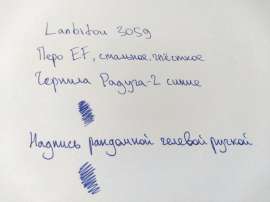 Lanbitou 3059
Перо EF, стальное, жёсткое
Чернила Радуга-2 синие
Надпись рандомной гелевой ручкой